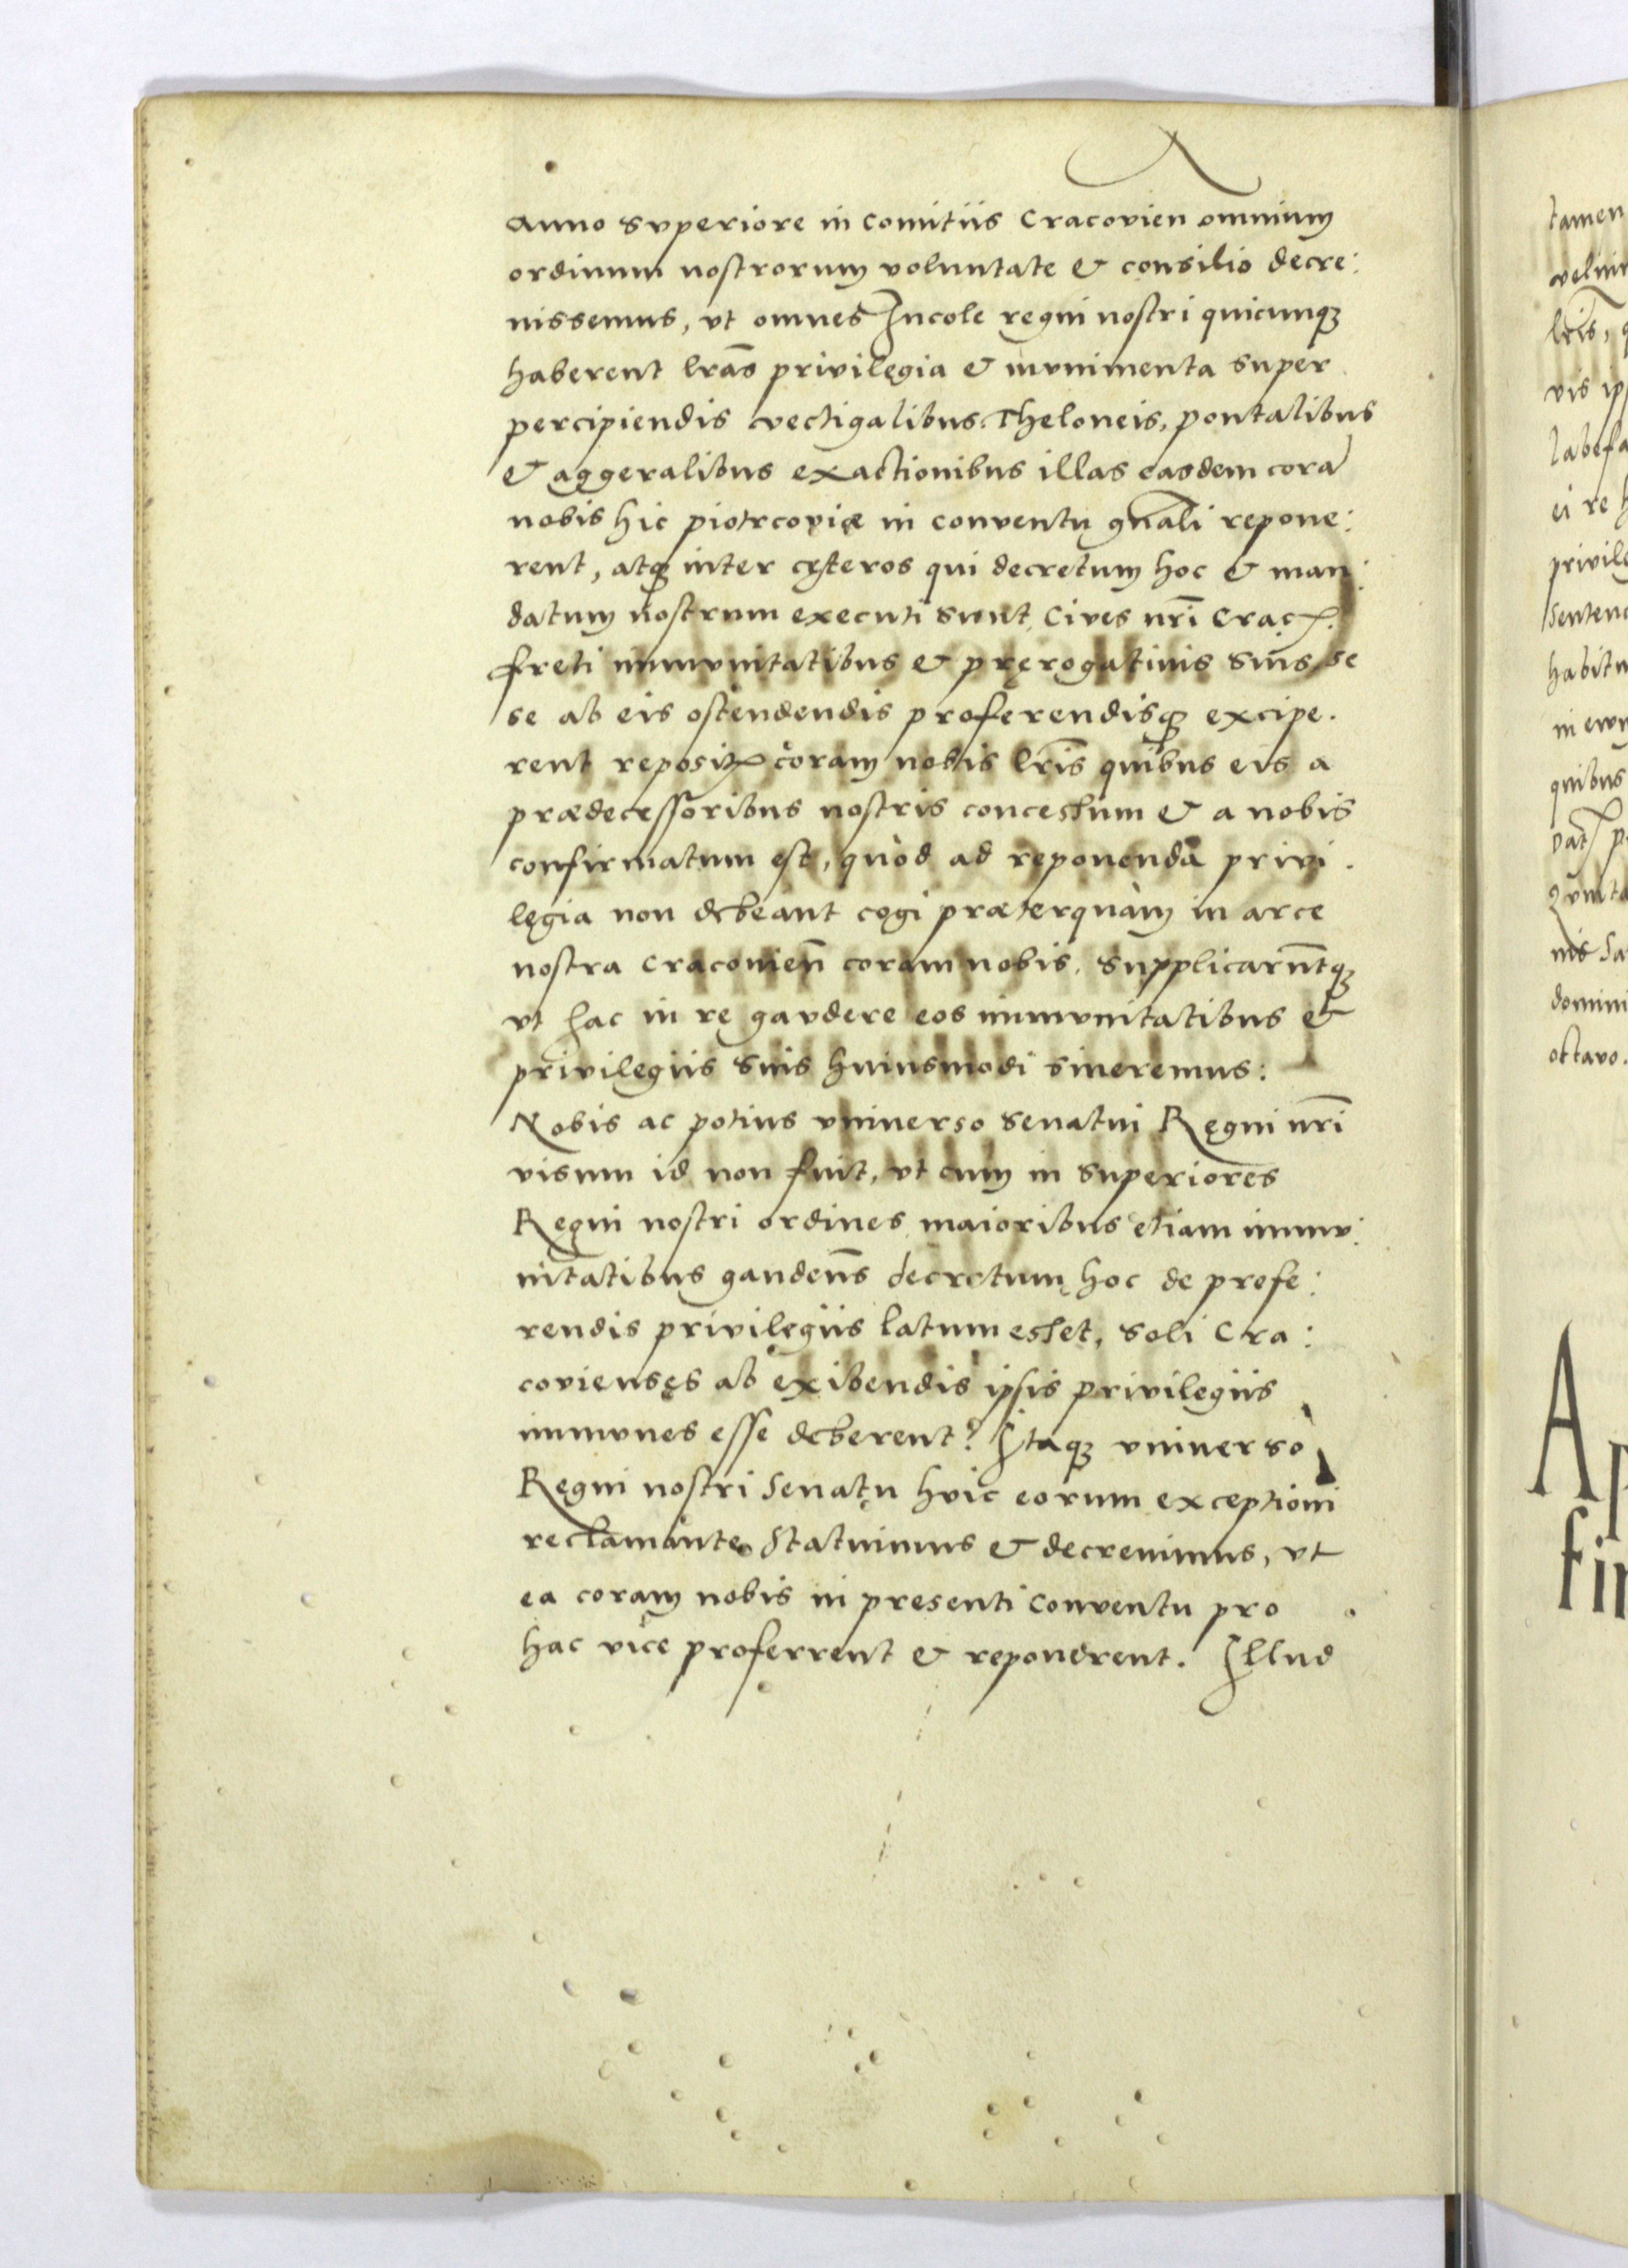 Anno superiore in comitiis Cracovien omnium
ordinum nostrorum voluntate & consilio decre:
nissemus, vt omnes Incole regni nostri quicunqz
haberent lrās privilegia & munimenta super
percipiendis vectigalibus Theloneis, pontalibus
& aggeralibus exactionibus illas easdem corā
nobis hic piotrcoviæ in conventu gnāli repone:
rent, atqz inter cęteros qui decretum hoc & man:
datum nostrum executi sunt, Cives nrī Crac.
freti immunitatibus & pręrogativis suis, se
se ab eis ostendendis proferendisqz excipe.
rent reposit coram nobis lrīs quibus eis a
prædecessoribus nostris concessum & a nobis
confirmatum est, quòd ad reponenda privi.
legia non debeant cogi præterquàm in arce
nostra Cracovień coram nobis, Supplicarūntqz
vt hac in re gaudere eos immunitatibus &
privilegiis suis huiusmodi sineremus:
Nobis ac potius vniuerso senatui Regni nrī
visum id non fuit, vt cum in superiores
Regni nostri ordines maioribus etiam immu:
nitatibus gaudeñs decretum hoc de profe:
rendis privilegiis latum esset, soli Cra:
covienses ab exibendis ipsis privilegiis
immunes esse deberent? Itaqz vniuerso
Regni nostri Senatu huic eorum exceptioni
reclamante Statuimus & decreuimus, vt
ea coram nobis in presenti conventu pro
hac vice proferrent & reponerent. Illud
tamen
lrīs,
vis
labefa
ei re
privile
Senten
habitu
quibus
nis Sa
domini
octavo.
A
fi